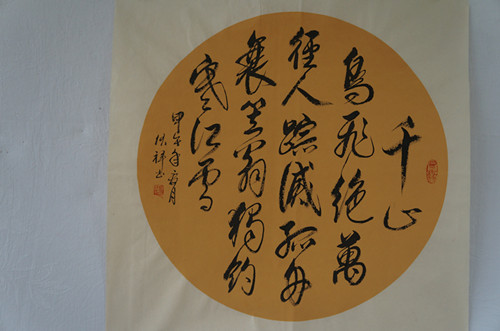 千山
鳥飛絕萬
徑人踪滅孤舟
蓑笠翁獨釣
寒江雪
甲午年月
洪祥书